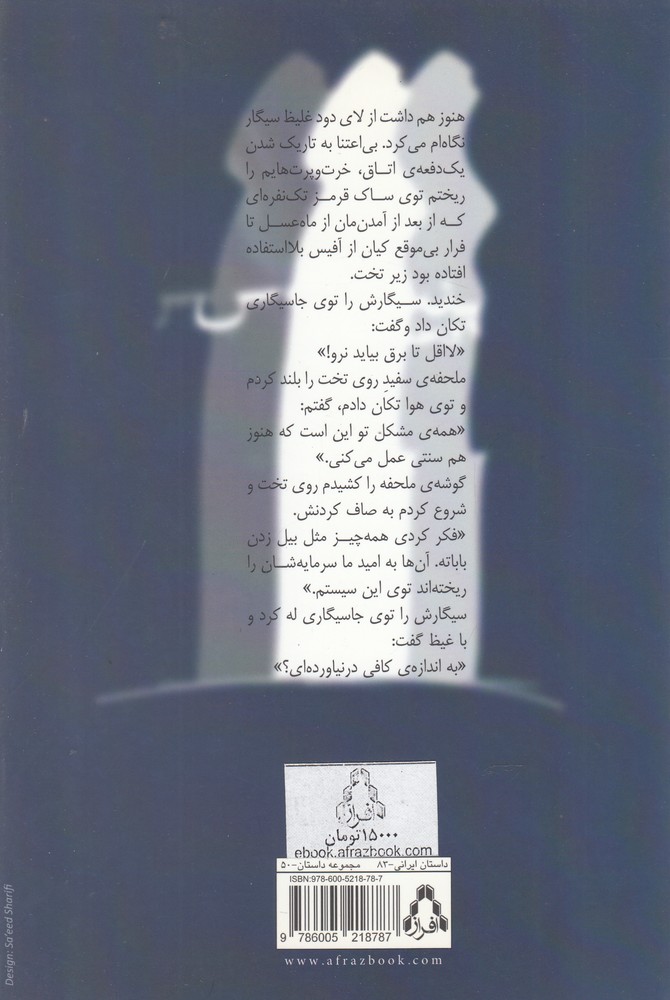 هنوز هم داشت از لای دود غلیظ سیگار
نگاه‌ام می‌کرد. بی‌اعتنا به تاریک شدن
یک‌دفعه‌ی اتاق، خرت‌وپرت‌هایم را
ریختم توی ساک قرمز تک‌نفره‌ای
که از بعد از آمدن‌مان از ماه‌عسل تا
فرار بی‌موقع کیان از آفیس بلااستفاده
افتاده بود زیر تخت.
خندید. سیگارش را توی جاسیگاری
تکان داد وگفت:
«لااقل تا برق بیاید نرو!»
ملحفه‌ی سفیدِ روی تخت را بلند کردم
و توی هوا تکان دادم، گفتم:
«همه‌ی مشکل تو این است که هنوز
هم سنتی عمل می‌کنی.»
گوشه‌ی ملحفه را کشیدم روی تخت و
شروع کردم به صاف کردنش.
«فکر کردی همه‌چیز مثل بیل زدن
باباته. آن‌ها به امید ما سرمایه‌شان را
ریخته‌اند توی این سیستم.»
سیگارش را توی جاسیگاری له کرد و
با غیظ گفت:
«به اندازه‌ی کافی درنیاورده‌ای؟»
افراز
۱۵۰۰۰تومان
ebook.afrazbook.com
داستان ایرانی-۸۳ مجموعه داستان-۵۰
ISBN:978-600-5218-78-7
افراز
9 786005 218787
www.afrazbook.com
Design: Sa'eed Sharifi